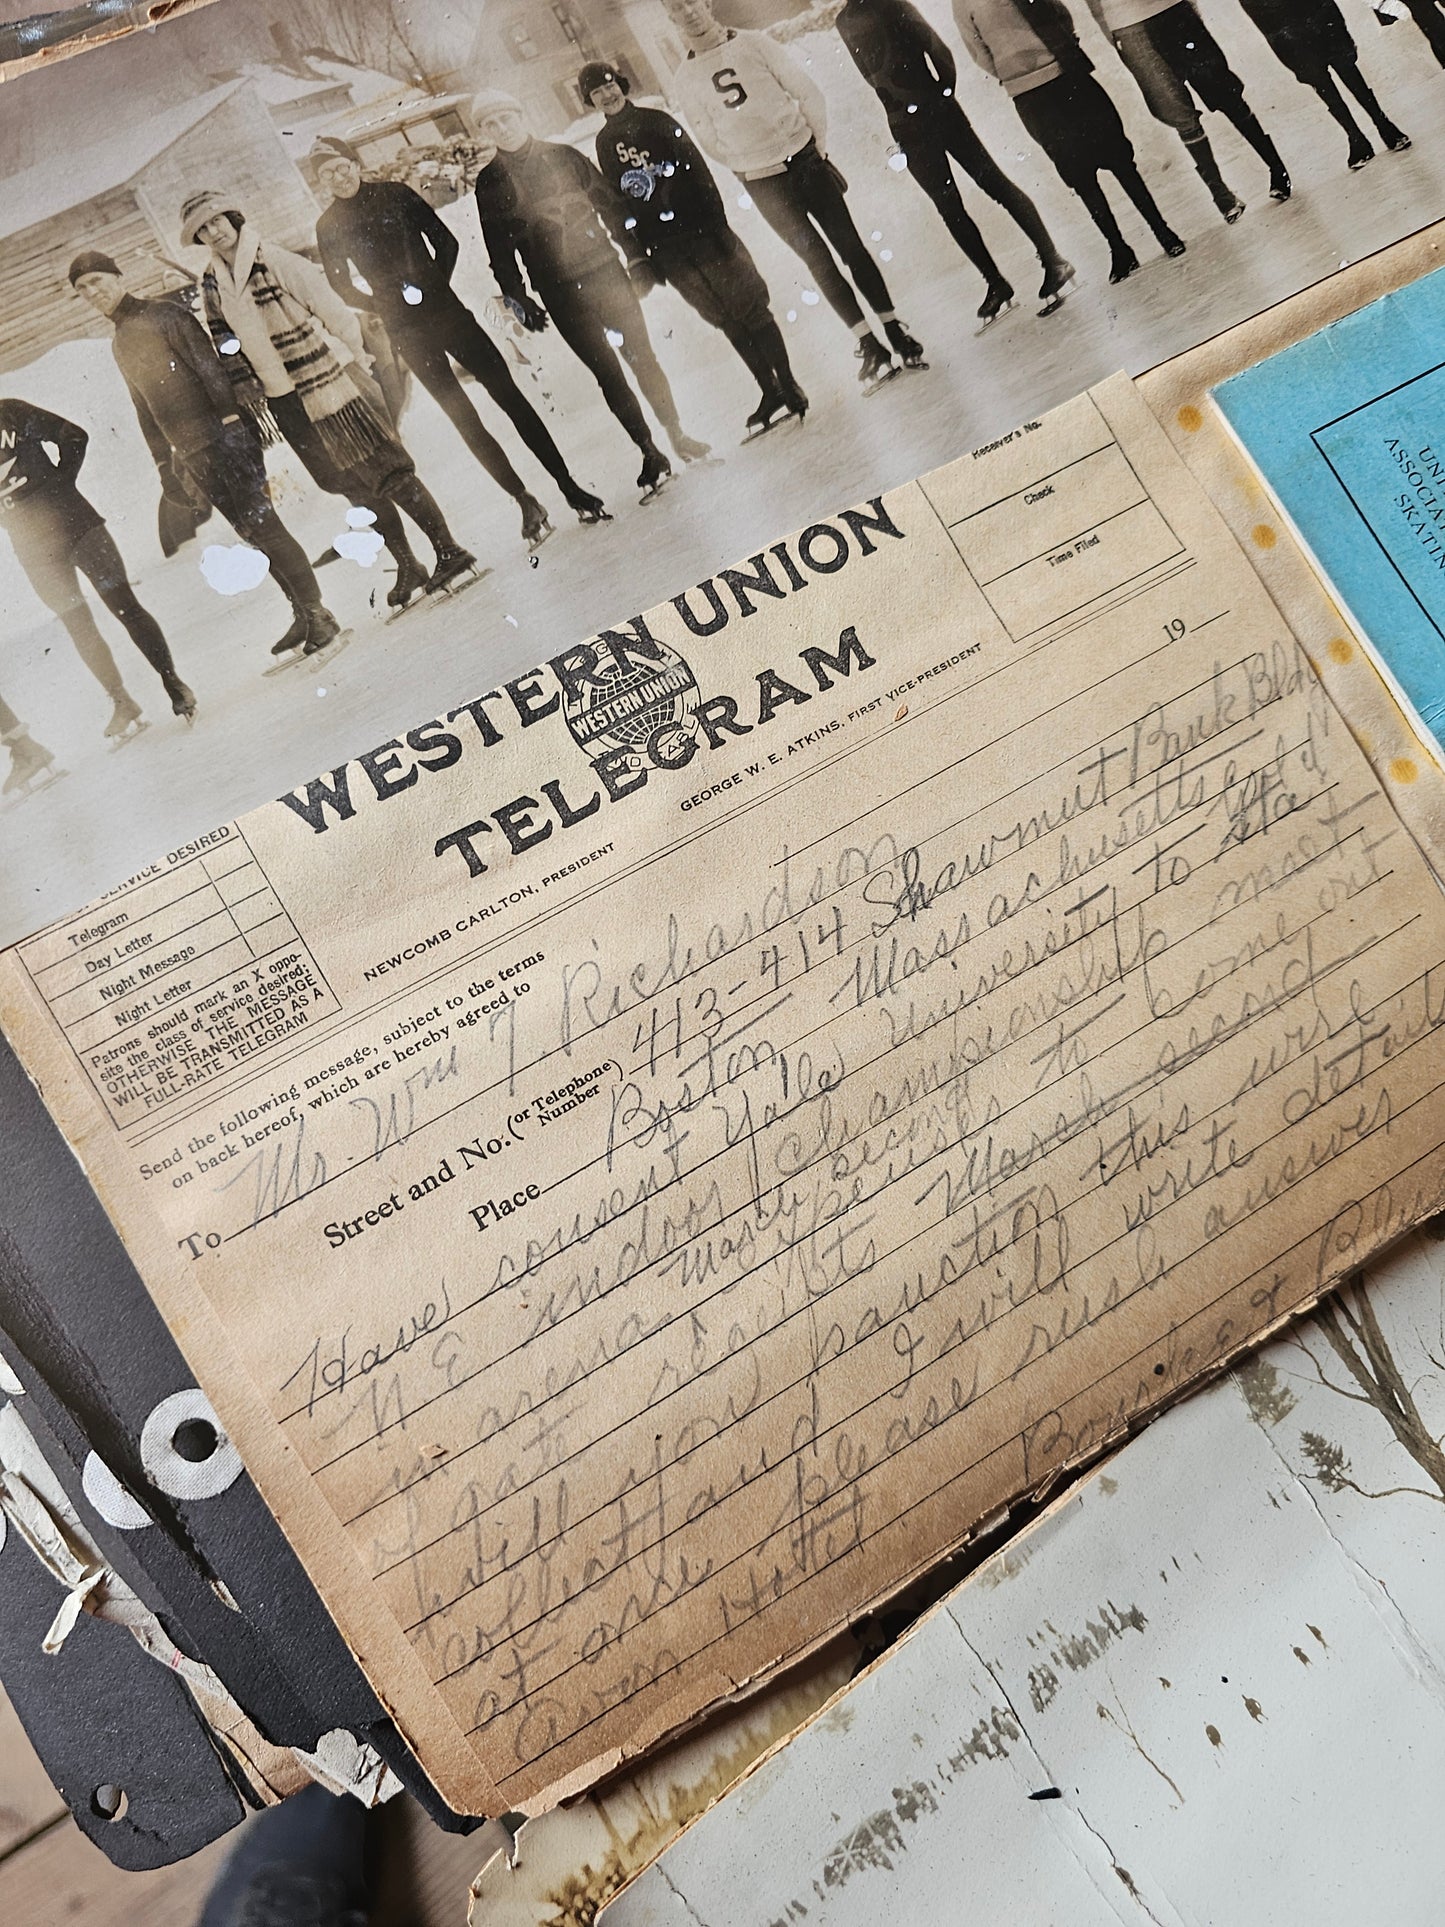 S
SSC
N
WESTERN UNION
WESTERN UNION
TELEGRAM
NEWCOMB CARLTON, PRESIDENT
GEORGE W. E. ATKINS, FIRST VICE-PRESIDENT
SERVICE DESIRED
Telegram
Day Letter
Night Message
Night Letter
Patrons should mark an X oppo-
site the class of service desired;
OTHERWISE THE MESSAGE
WILL BE TRANSMITTED AS A
FULL-RATE TELEGRAM
Receiver's No.
Check
Time Filed
19
Send the following message, subject to the terms
on back hereof, which are hereby agreed to
To Mr. Wm T. Richardson
Street and No. (or Telephone Number) 413-414 Shawmut Bank Bldg
Place Boston Massachusetts
Have consent Yale University to
N E indoor championship meet
March second
in arena expenses to come out
of gate receipts March second
will you sanction this wire
collect and I will write details
at once please rush answer
Avon Hotel
UNI
ASSOCIA
SKATIN